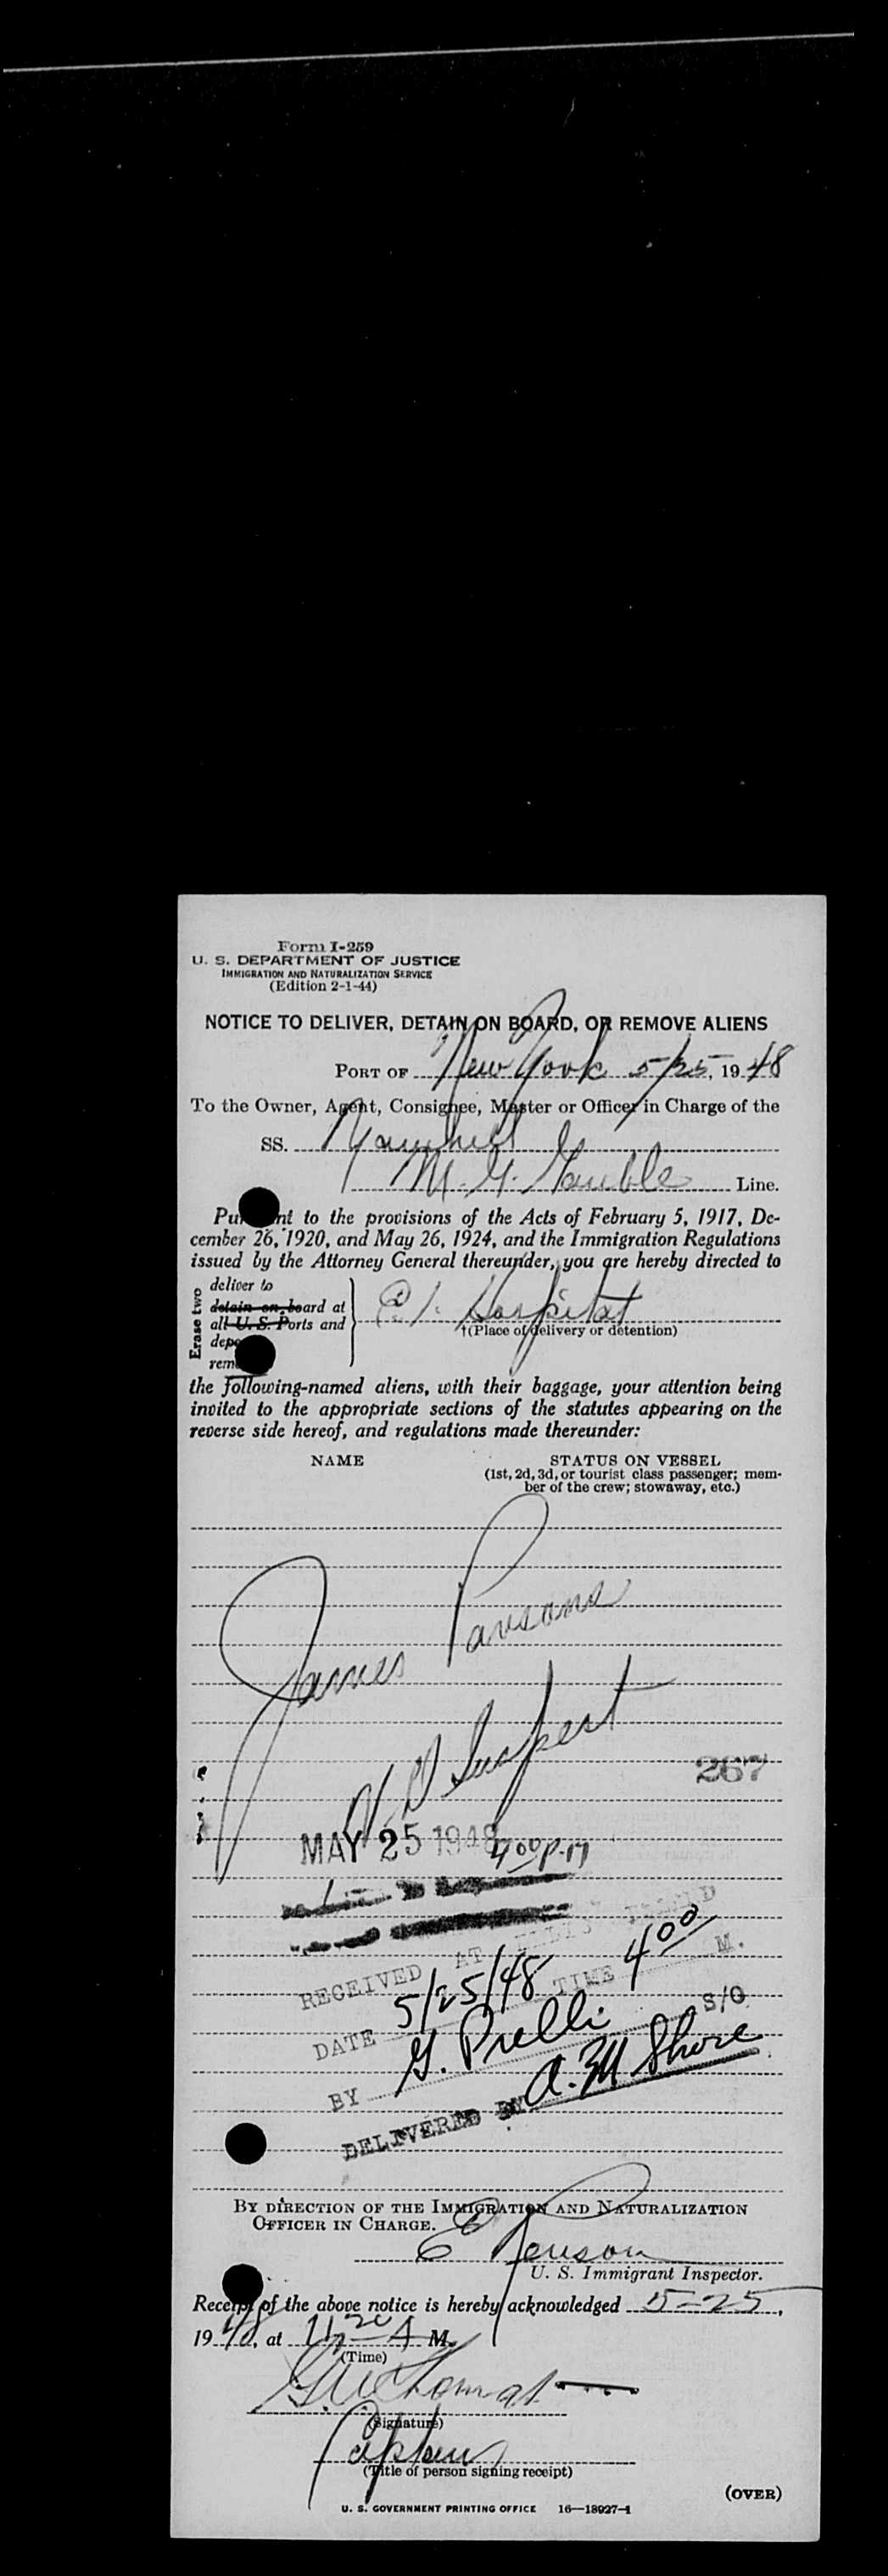 Form I-259
U. S. DEPARTMENT OF JUSTICE
IMMIGRATION AND NATURALIZATION SERVICE
(Edition 2-1-44)
NOTICE TO DELIVER, DETAIN ON BOARD, OR REMOVE ALIENS
PORT OF New York 5/25, 1948
To the Owner, Agent, Consignee, Master or Officer in Charge of the
SS. Yamhill
M. G. Line.
to the provisions of the Acts of February 5, 1917, De-
cember 26, 1920, and May 26, 1924, and the Immigration Regulations
issued by the Attorney General thereunder, you are hereby directed to
Erase two
deliver to
detain on board at
all U. S. Ports and
E. I. Hospital
†(Place of delivery or detention)
the following-named aliens, with their baggage, your attention being
invited to the appropriate sections of the statutes appearing on the
reverse side hereof, and regulations made thereunder:
NAME STATUS ON VESSEL
(1st, 2d, 3d, or tourist class passenger; mem-
ber of the crew; stowaway, etc.)
James Parsons
V. D Suspect
267
MAY 25 1948 4 00 P.M
RECEIVED AT ELLIS ISLAND
DATE 5/25/48 TIME 4 00 M.
BY G. Prelli S/O
DELIVERED BY A. M Shore
BY DIRECTION OF THE IMMIGRATION AND NATURALIZATION
OFFICER IN CHARGE.
E
U. S. Immigrant Inspector.
Receipt of the above notice is hereby acknowledged 5-25,
1948, at 11 30 A M.
(Time)
(Signature)
Captain
(Title of person signing receipt)
(OVER)
U. S. GOVERNMENT PRINTING OFFICE 16—18927-1